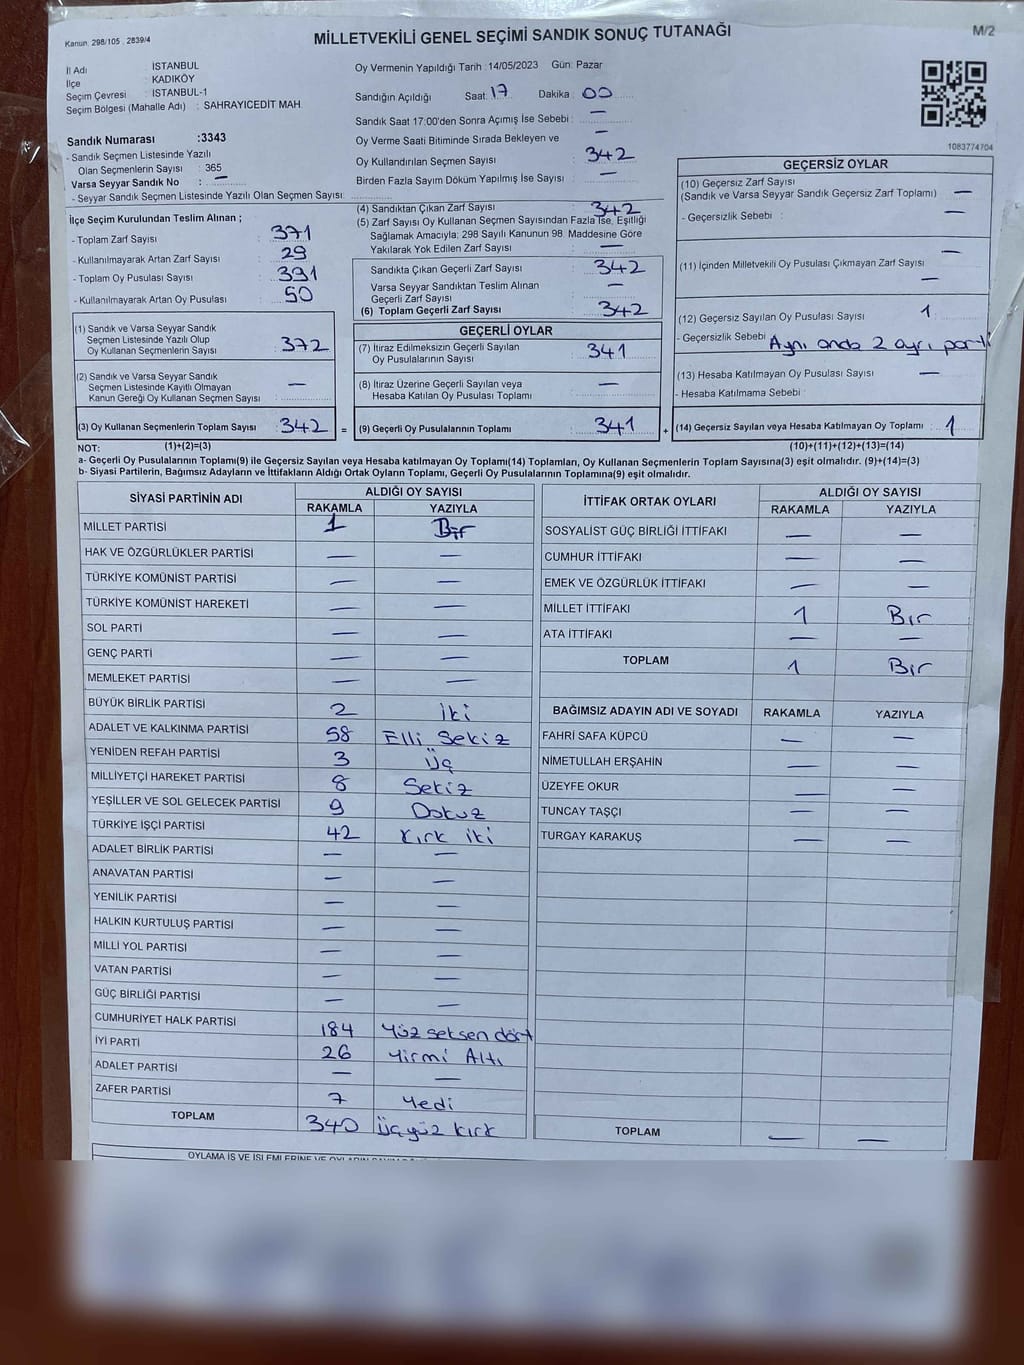 Kanun: 298/105 , 2839/4
MİLLETVEKİLİ GENEL SEÇİMİ SANDIK SONUÇ TUTANAĞI
M/2
İl Adı : İSTANBUL
İlçe : KADIKÖY
Seçim Çevresi : İSTANBUL-1
Seçim Bölgesi (Mahalle Adı) : SAHRAYICEDİT MAH.
Sandık Numarası :3343
- Sandık Seçmen Listesinde Yazılı
Olan Seçmenlerin Sayısı : 365
Varsa Seyyar Sandık No : —
- Seyyar Sandık Seçmen Listesinde Yazılı Olan Seçmen Sayısı:
Oy Vermenin Yapıldığı Tarih :14/05/2023 Gün: Pazar
Sandığın Açıldığı Saat: 17 Dakika : 00
Sandık Saat 17:00'den Sonra Açılmış İse Sebebi : —
Oy Verme Saati Bitiminde Sırada Bekleyen ve —
Oy Kullandırılan Seçmen Sayısı : 342
Birden Fazla Sayım Döküm Yapılmış İse Sayısı : —
1083774704
İlçe Seçim Kurulundan Teslim Alınan ;
- Toplam Zarf Sayısı : 371
- Kullanılmayarak Artan Zarf Sayısı : 29
- Toplam Oy Pusulası Sayısı : 391
- Kullanılmayarak Artan Oy Pusulası : 50
(1) Sandık ve Varsa Seyyar Sandık
Seçmen Listesinde Yazılı Olup
Oy Kullanan Seçmenlerin Sayısı : 372
(2) Sandık ve Varsa Seyyar Sandık
Seçmen Listesinde Kayıtlı Olmayan
Kanun Gereği Oy Kullanan Seçmen Sayısı : —
(3) Oy Kullanan Seçmenlerin Toplam Sayısı : 342 =
(4) Sandıktan Çıkan Zarf Sayısı : 342
(5) Zarf Sayısı Oy Kullanan Seçmen Sayısından Fazla İse, Eşitliği
Sağlamak Amacıyla: 298 Sayılı Kanunun 98. Maddesine Göre
Yakılarak Yok Edilen Zarf Sayısı : —
Sandıkta Çıkan Geçerli Zarf Sayısı : 342
Varsa Seyyar Sandıktan Teslim Alınan
Geçerli Zarf Sayısı : —
(6) Toplam Geçerli Zarf Sayısı : 342
GEÇERLİ OYLAR
(7) İtiraz Edilmeksizin Geçerli Sayılan
Oy Pusulalarının Sayısı : 341
(8) İtiraz Üzerine Geçerli Sayılan veya
Hesaba Katılan Oy Pusulası Toplamı : —
(9) Geçerli Oy Pusulalarının Toplamı : 341 +
GEÇERSİZ OYLAR
(10) Geçersiz Zarf Sayısı
(Sandık ve Varsa Seyyar Sandık Geçersiz Zarf Toplamı) : —
- Geçersizlik Sebebi : —
(11) İçinden Milletvekili Oy Pusulası Çıkmayan Zarf Sayısı : —
—
(12) Geçersiz Sayılan Oy Pusulası Sayısı : 1
- Geçersizlik Sebebi : Aynı anda 2 ayrı parti
(13) Hesaba Katılmayan Oy Pusulası Sayısı : —
- Hesaba Katılmama Sebebi :
(14) Geçersiz Sayılan veya Hesaba Katılmayan Oy Toplamı : 1
NOT: (1)+(2)=(3) (10)+(11)+(12)+(13)=(14)
a- Geçerli Oy Pusulalarının Toplamı(9) ile Geçersiz Sayılan veya Hesaba katılmayan Oy Toplamı(14) Toplamları, Oy Kullanan Seçmenlerin Toplam Sayısına(3) eşit olmalıdır. (9)+(14)=(3)
b- Siyasi Partilerin, Bağımsız Adayların ve İttifakların Aldığı Ortak Oyların Toplamı, Geçerli Oy Pusulalarının Toplamına(9) eşit olmalıdır.
SİYASİ PARTİNİN ADI ALDIĞI OY SAYISI
RAKAMLA YAZIYLA
MİLLET PARTİSİ 1 Bir
HAK VE ÖZGÜRLÜKLER PARTİSİ — —
TÜRKİYE KOMÜNİST PARTİSİ — —
TÜRKİYE KOMÜNİST HAREKETİ — —
SOL PARTİ — —
GENÇ PARTİ — —
MEMLEKET PARTİSİ — —
BÜYÜK BİRLİK PARTİSİ 2 İki
ADALET VE KALKINMA PARTİSİ 58 Elli Sekiz
YENİDEN REFAH PARTİSİ 3 Üç
MİLLİYETÇİ HAREKET PARTİSİ 8 Sekiz
YEŞİLLER VE SOL GELECEK PARTİSİ 9 Dokuz
TÜRKİYE İŞÇİ PARTİSİ 42 Kırk iki
ADALET BİRLİK PARTİSİ — —
ANAVATAN PARTİSİ — —
YENİLİK PARTİSİ — —
HALKIN KURTULUŞ PARTİSİ — —
MİLLİ YOL PARTİSİ — —
VATAN PARTİSİ — —
GÜÇ BİRLİĞİ PARTİSİ — —
CUMHURİYET HALK PARTİSİ 184 Yüz seksen dört
İYİ PARTİ 26 Yirmi Altı
ADALET PARTİSİ — —
ZAFER PARTİSİ 7 Yedi
TOPLAM 340 Üçyüz kırk
İTTİFAK ORTAK OYLARI ALDIĞI OY SAYISI
RAKAMLA YAZIYLA
SOSYALİST GÜÇ BİRLİĞİ İTTİFAKI — —
CUMHUR İTTİFAKI — —
EMEK VE ÖZGÜRLÜK İTTİFAKI — —
MİLLET İTTİFAKI 1 Bir
ATA İTTİFAKI — —
TOPLAM 1 Bir
BAĞIMSIZ ADAYIN ADI VE SOYADI RAKAMLA YAZIYLA
FAHRİ SAFA KÜPCÜ — —
NİMETULLAH ERŞAHİN — —
ÜZEYFE OKUR — —
TUNCAY TAŞÇI — —
TURGAY KARAKUŞ — —
TOPLAM — —